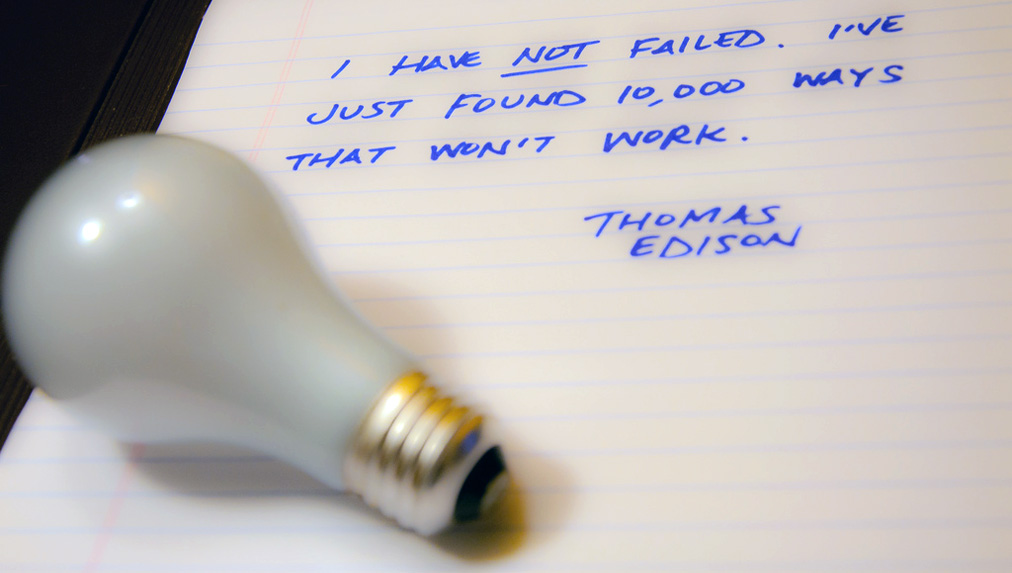 I HAVE NOT FAILED. I'VE
JUST FOUND 10,000 WAYS
THAT WON'T WORK.
THOMAS
EDISON